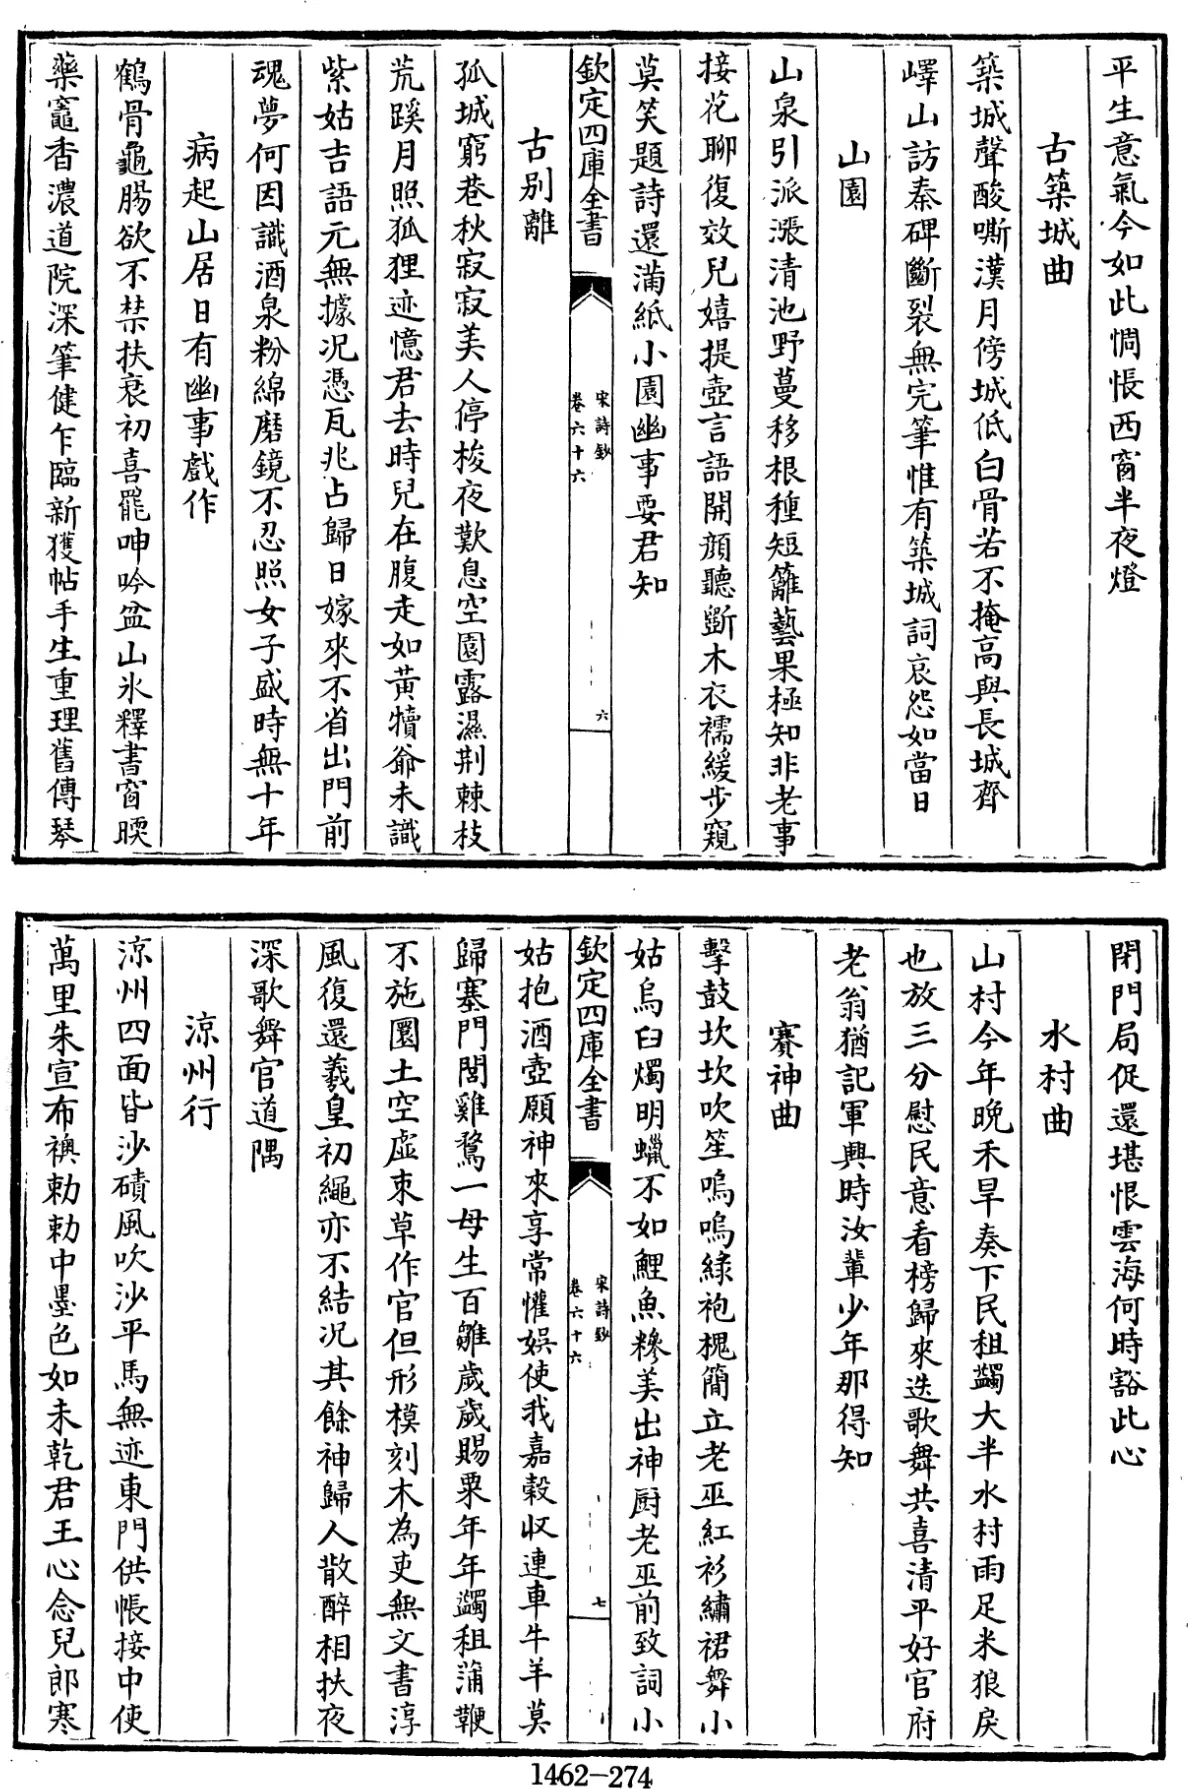 平生意氣今如此惆悵西窗半夜燈
古築城曲
築城聲酸嘶漢月傍城低白骨若不掩高與長城齊
嶧山訪秦碑斷裂無完筆惟有築城詞哀怨如當日
山園
山泉引派漲清池野蔓移根種短籬藝果極知非老事
接花聊復效兒嬉提壺言語開顏聽斵木衣襦緩步窺
莫笑題詩還滿紙小園幽事要君知
欽定四庫全書
宋詩鈔
卷六十六
六
古別離
孤城窮巷秋寂寂美人停梭夜歎息空園露濕荆棘枝
荒蹊月照狐狸迹憶君去時兒在腹走如黄犢爺未識
紫姑吉語元無據况憑瓦兆占歸日嫁來不省出門前
魂夢何因識酒泉粉綿磨鏡不忍照女子盛時無十年
病起山居日有幽事戲作
鶴骨龜腸欲不禁扶衰初喜罷呻吟盆山氷釋書窗暝
藥竈香濃道院深筆健乍臨新獲帖手生重理舊傳琴
閉門局促還堪恨雲海何時豁此心
水村曲
山村今年晚禾旱奏下民租蠲大半水村雨足米狼戾
也放三分慰民意看榜歸來迭歌舞共喜清平好官府
老翁猶記軍興時汝輩少年那得知
賽神曲
擊鼓坎坎吹笙嗚嗚綠袍槐簡立老巫紅衫繡裙舞小
姑烏臼燭明蠟不如鯉魚糝美出神厨老巫前致詞小
欽定四庫全書
宋詩鈔
卷六十六
七
姑抱酒壺願神來享常懽娱使我嘉穀収連車牛羊莫
歸塞門閭雞鶩一母生百雛歲歲賜粟年年蠲租蒲鞭
不施圜土空虛束草作官但形模刻木為吏無文書淳
風復還羲皇初繩亦不結况其餘神歸人散醉相扶夜
深歌舞官道隅
涼州行
涼州四面皆沙磧風吹沙平馬無迹東門供帳接中使
萬里朱宣布襖勅勅中墨色如未乾君王心念兒郎寒
1462-274